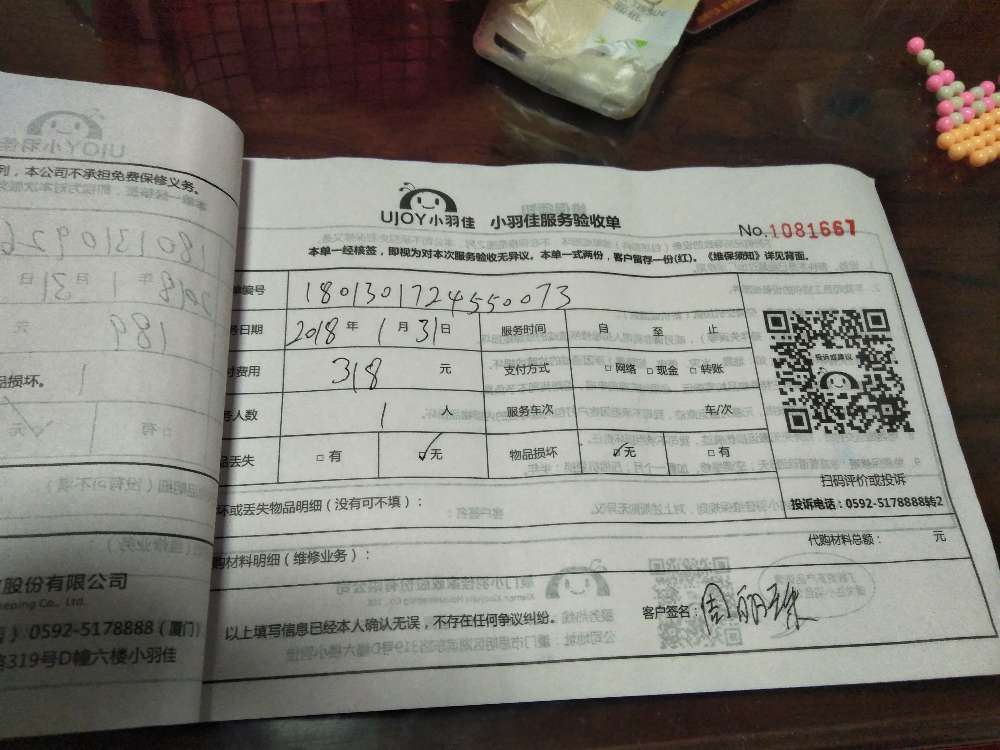 列，本公司不承担免费保修义务。
品损坏。
股份有限公司
eping Co., Ltd.
0592-5178888（厦门）
路319号D幢六楼小羽佳
UJOY小羽佳 小羽佳服务验收单
No.1081667
本单一经核签，即视为对本次服务验收无异议。本单一式两份，客户留存一份(红)。《维保须知》详见背面。
单编号 1801301724550073
务日期 2018 年 1 月 31 日 服务时间 自 至 止
付费用 318 元 支付方式 □ 网络 □ 现金 □ 转账
务人数 1 人 服务车次 车/次
品丢失 □ 有 ☑ 无 物品损坏 ☑ 无 □ 有
投诉或建议
扫码评价或投诉
投诉电话：0592-5178888转2
坏或丢失物品明细（没有可不填）：
代购材料总额： 元
购材料明细（维修业务）：
以上填写信息已经本人确认无误，不存在任何争议纠纷。
客户签名：周丽珠